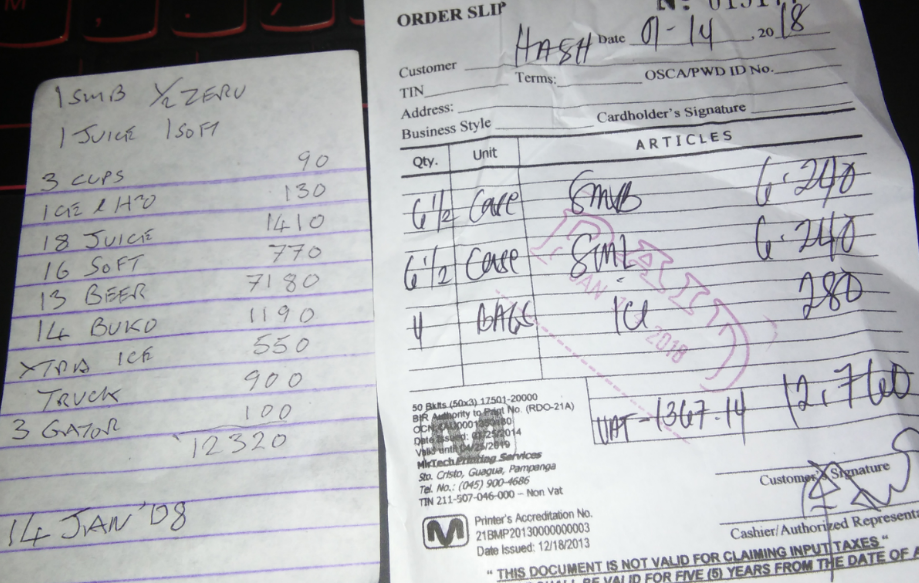 1 SMB 1/2 ZERO
1 JUICE 1 SOFT
3 CUPS 90
ICE & H2O 130
18 JUICE 1410
16 SOFT 770
13 BEER 7180
14 BUKO 1190
XTRA ICE 550
TRUCK 900
3 GATOR 100
12320
14 JAN '08
ORDER SLIP
Customer HASH Date 01-14, 2018
TIN Terms: OSCA/PWD ID No.
Address:
Business Style Cardholder's Signature
Qty. Unit ARTICLES
6 1/2 Case SMB 6.240
6 1/2 Case SML 6.240
4 BAGS ICE 280
PAID
JAN 2018
VAT-1367.14 12.760
50 Bklts (50x3) 17501-20000
BIR Authority to Print No. (RDO-21A)
Date Issued: 03/25/2014
Valid until 04/25/2019
MkTech Printing Services
Sto. Cristo, Guagua, Pampanga
Tel. No.: (045) 900-4686
TIN 211-507-046-000 - Non Vat
Customer's Signature
M
Printer's Accreditation No.
21BMP20130000000003
Date Issued: 12/18/2013
Cashier/Authorized Representa
" THIS DOCUMENT IS NOT VALID FOR CLAIMING INPUT TAXES "
BE VALID FOR FIVE (5) YEARS FROM THE DATE OF A